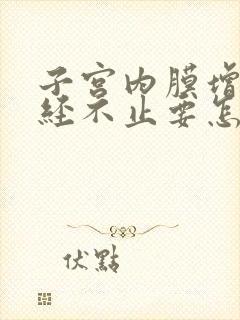 子宫内膜增
经不止要怎
伏點